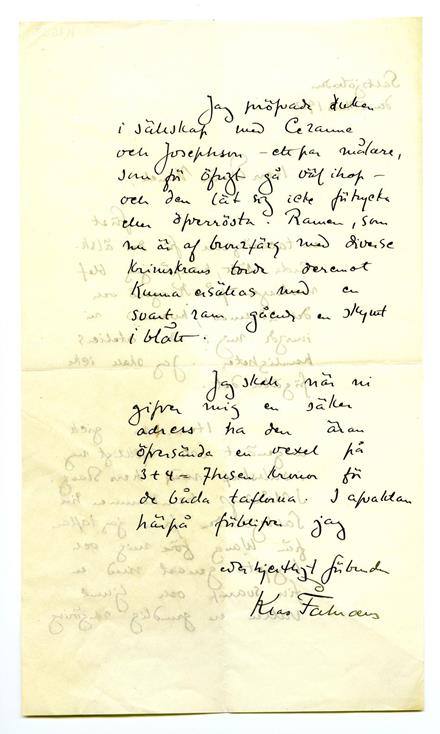 Jag pröfvade duken
i sällskap med Cezanne
och Josephson – ett par målare,
som för öfrigt gå väl ihop –
och den lät sig icke förtrycka
eller öfverrösta. Ramen, som
nu är af bronzfärg med diverse
Krimskrams torde deremot
Kunna ersättas med en
svart ram gående en skymt
i blått.
Jag skall när ni
gifver mig en säker
adress ha den äran
öfversända en vexel på
3+4 = 7 tusen Kronor för
de båda taflorna. I afvaktan
härpå förblifver jag
eder hjertligt förbundne
Klas Fåhraeus